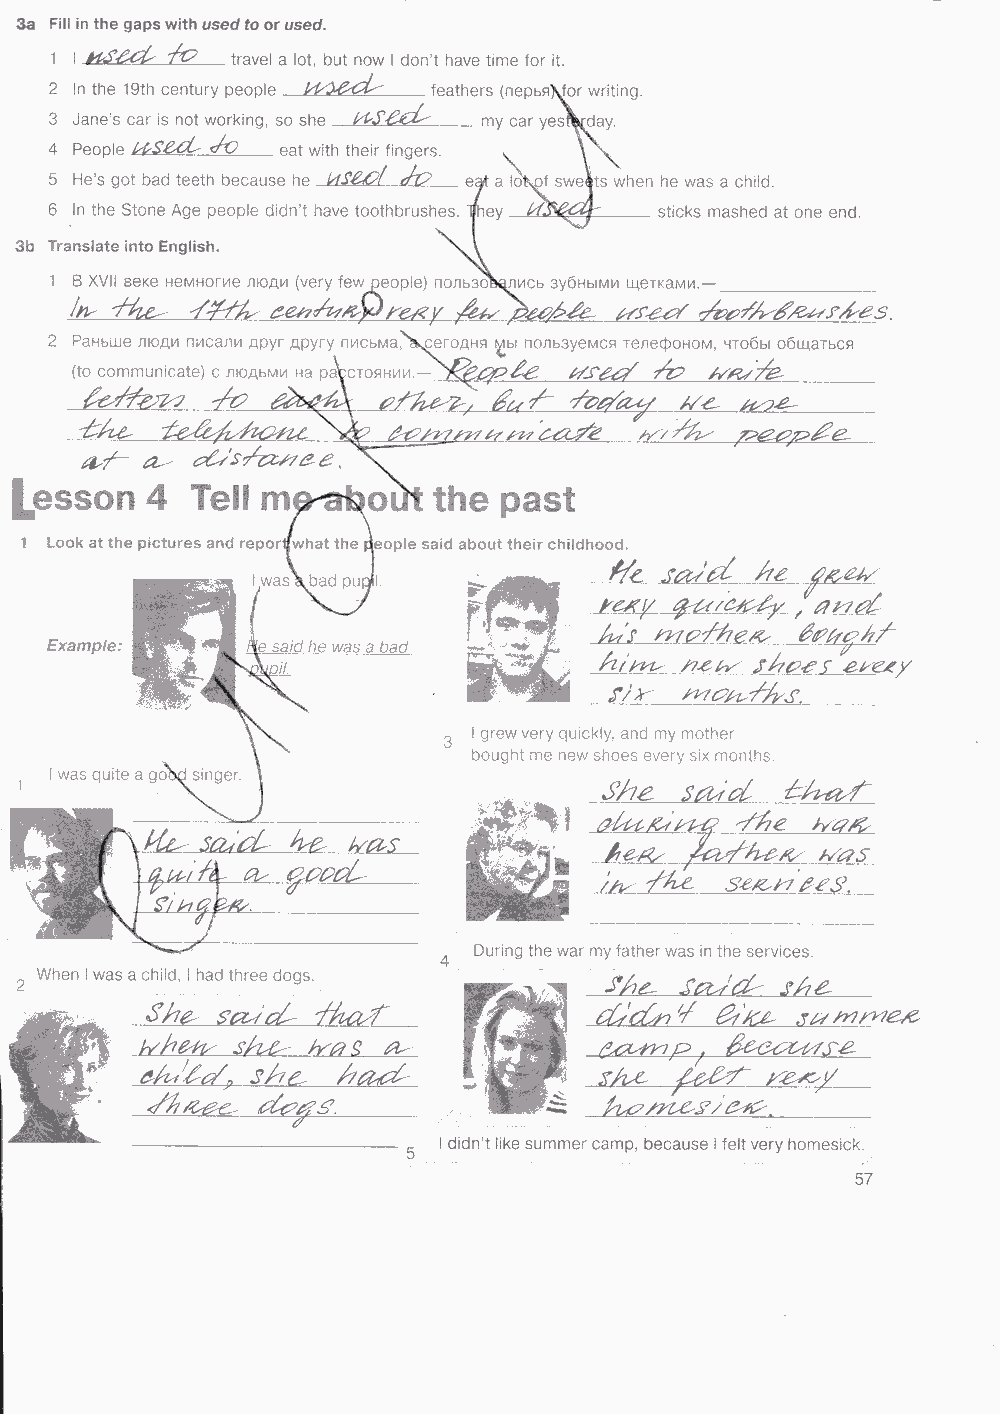 3a Fill in the gaps with used to or used.
1 I used to travel a lot, but now I don't have time for it.
2 In the 19th century people used feathers (перья) for writing.
3 Jane's car is not working, so she used my car yesterday.
4 People used to eat with their fingers.
5 He's got bad teeth because he used to eat a lot of sweets when he was a child.
6 In the Stone Age people didn't have toothbrushes. They used sticks mashed at one end.
3b Translate into English.
1 В XVII веке немногие люди (very few people) пользовались зубными щетками.—
In the 17th century very few people used toothbrushes.
2 Раньше люди писали друг другу письма, а сегодня мы пользуемся телефоном, чтобы общаться
(to communicate) с людьми на расстоянии.— People used to write
letters to each other, but today we use
the telephone to communicate with people
at a distance.
Lesson 4 Tell me about the past
1 Look at the pictures and report what the people said about their childhood.
I was a bad pupil.
Example: He said he was a bad
pupil.
1 I was quite a good singer.
He said he was
quite a good
singer.
2 When I was a child, I had three dogs.
She said that
when she was a
child, she had
three dogs.
He said he grew
very quickly, and
his mother bought
him new shoes every
six months.
3 I grew very quickly, and my mother
bought me new shoes every six months.
She said that
during the war
her father was
in the services.
4 During the war my father was in the services.
She said she
didn't like summer
camp, because
she felt very
homesick.
5 I didn't like summer camp, because I felt very homesick.
57